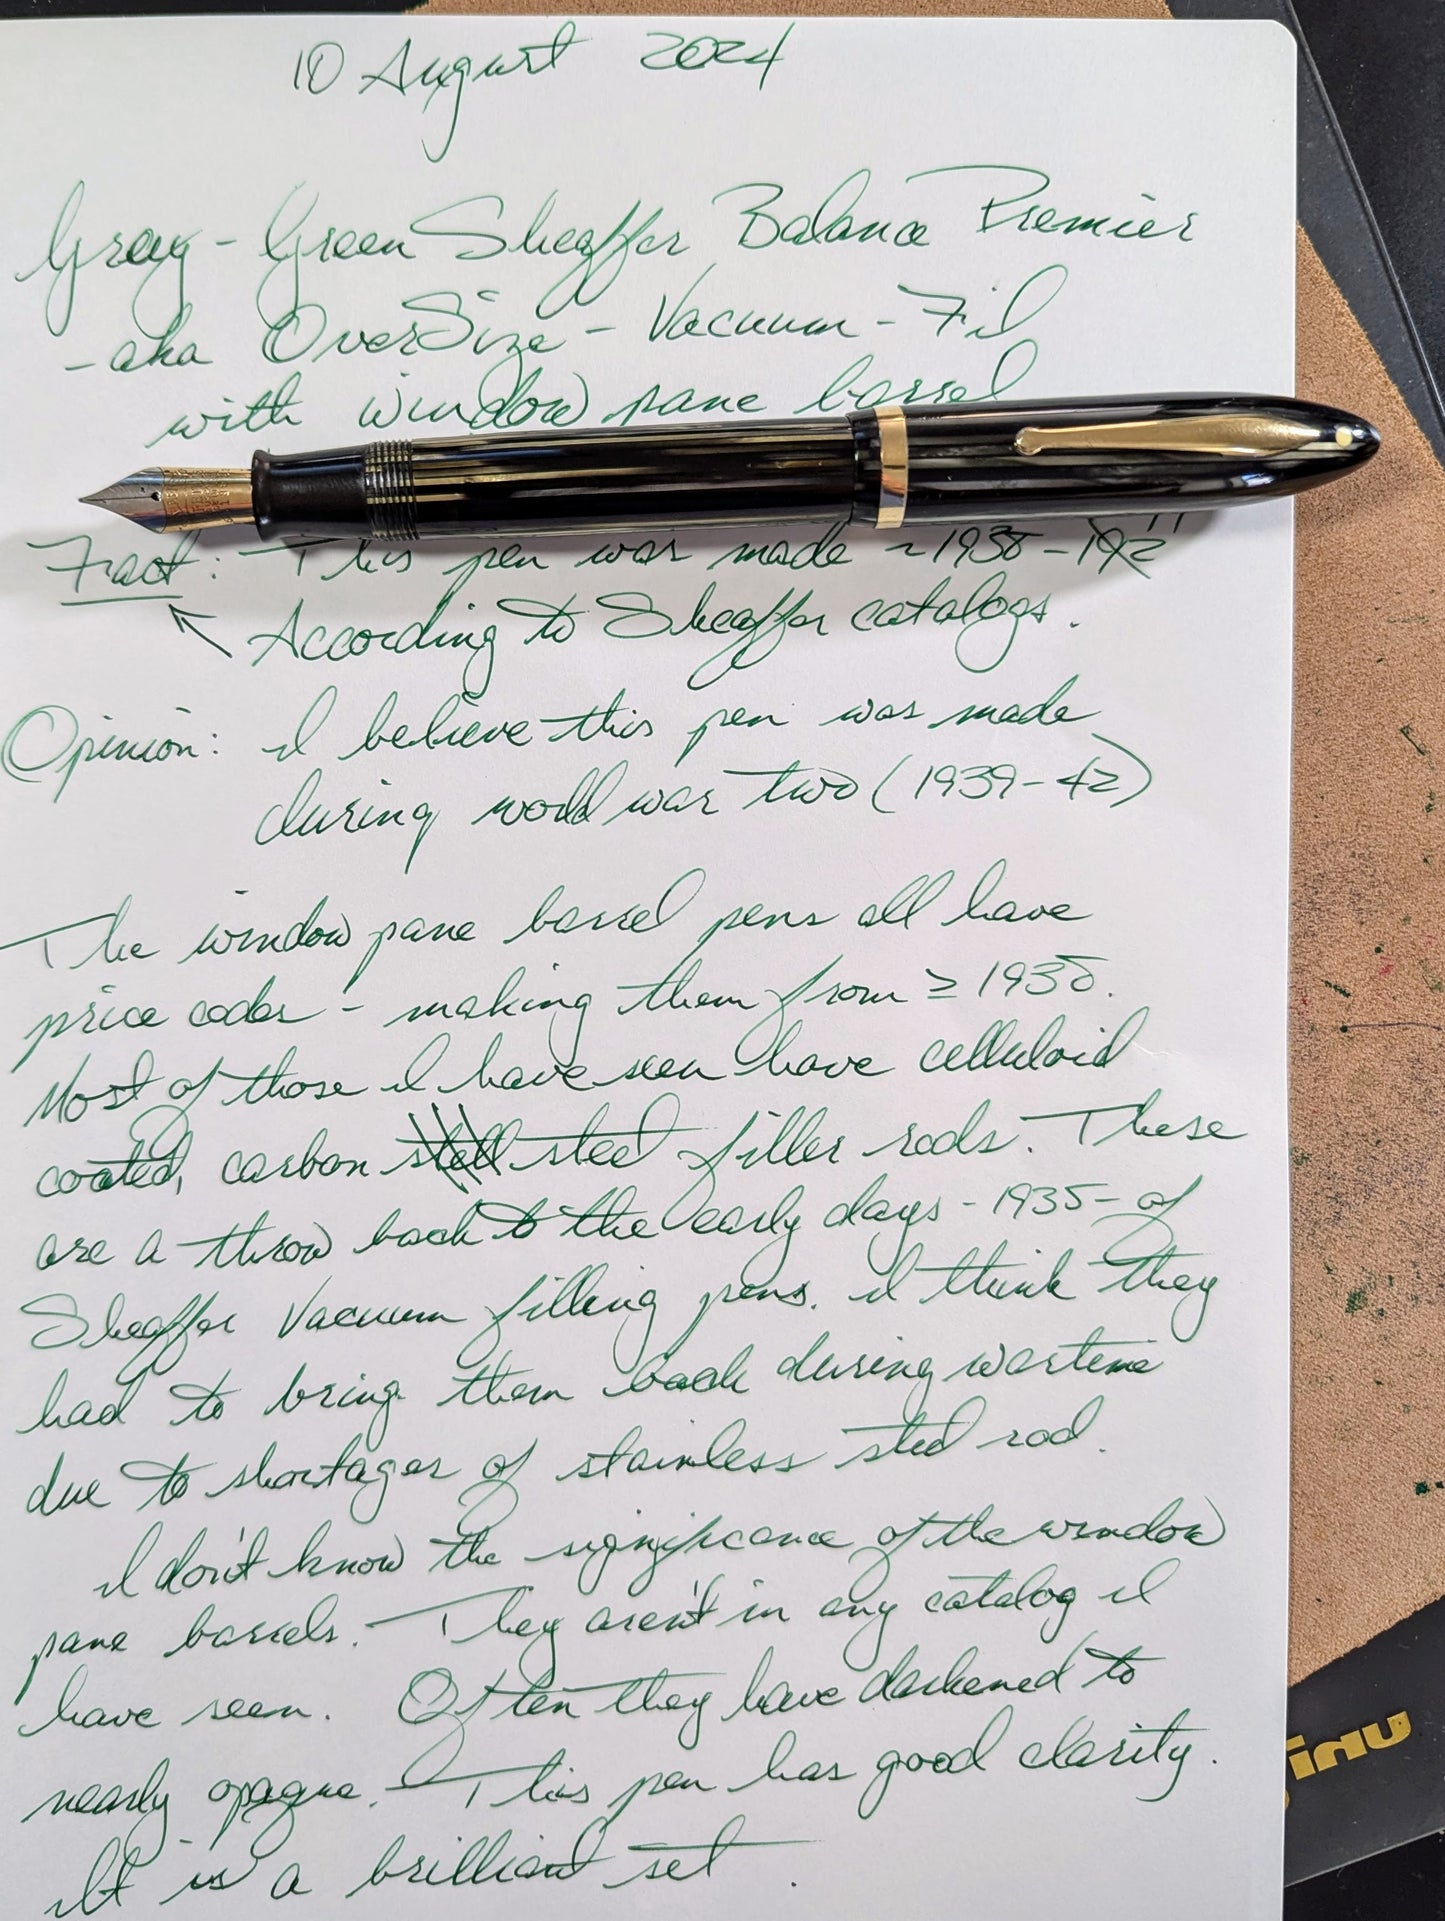 10 August 2024
Gray-Green Sheaffer Balance Premier
- aka OverSize - Vacuum-Fil
with window pane barrel
Fact: This pen was made ~1938-
According to Sheaffer catalogs.
Opinion: I believe this pen was made
during world war two (1939-42)
The window pane barrel pens all have
price codes - making them from ≥ 1938.
Most of those I have seen have celluloid
coated, carbon steel filler rods. These
are a throw back to the early days - 1935 - of
Sheaffer Vacuum filling pens. I think they
had to bring them back during wartime
due to shortages of stainless steel rod.
I don't know the significance of the window
pane barrels. They aren't in any catalog I
have seen. Often they have darkened to
nearly opaque. This pen has good clarity.
It is a brilliant set.